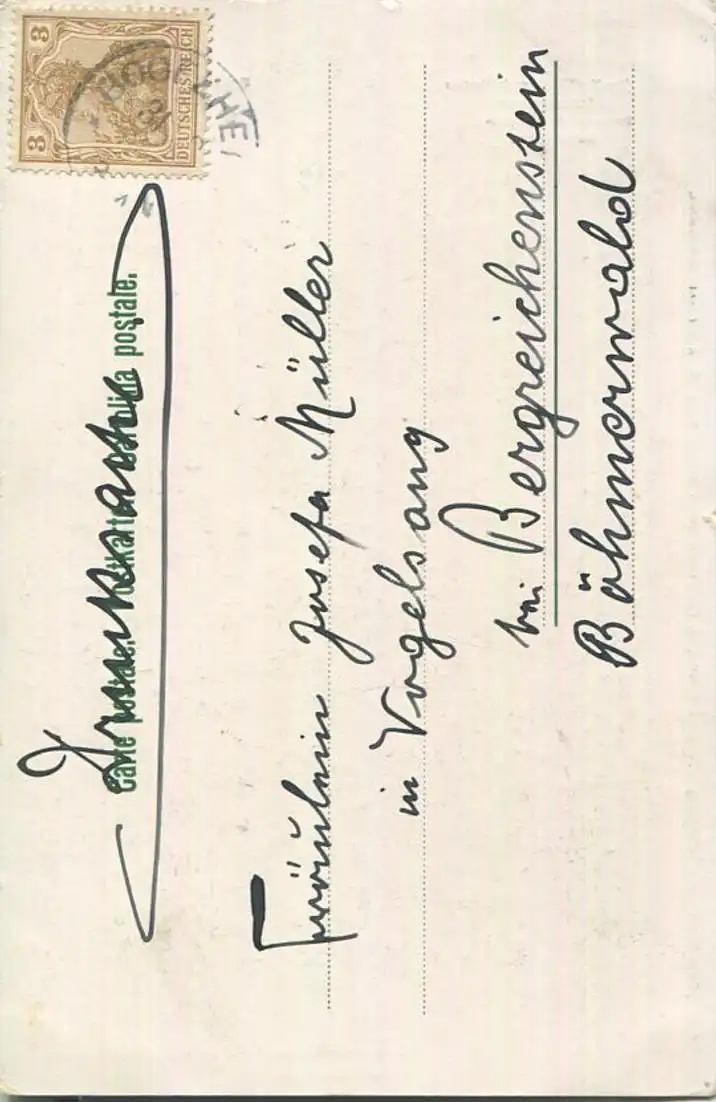 3 DEUTSCHES REICH 3
Carte postale. Postkarte. Cartolina postale.
Drucksache
Fräulein Josefa Müller
in Vogelsang
bei Bergreichenstein
Böhmerwald